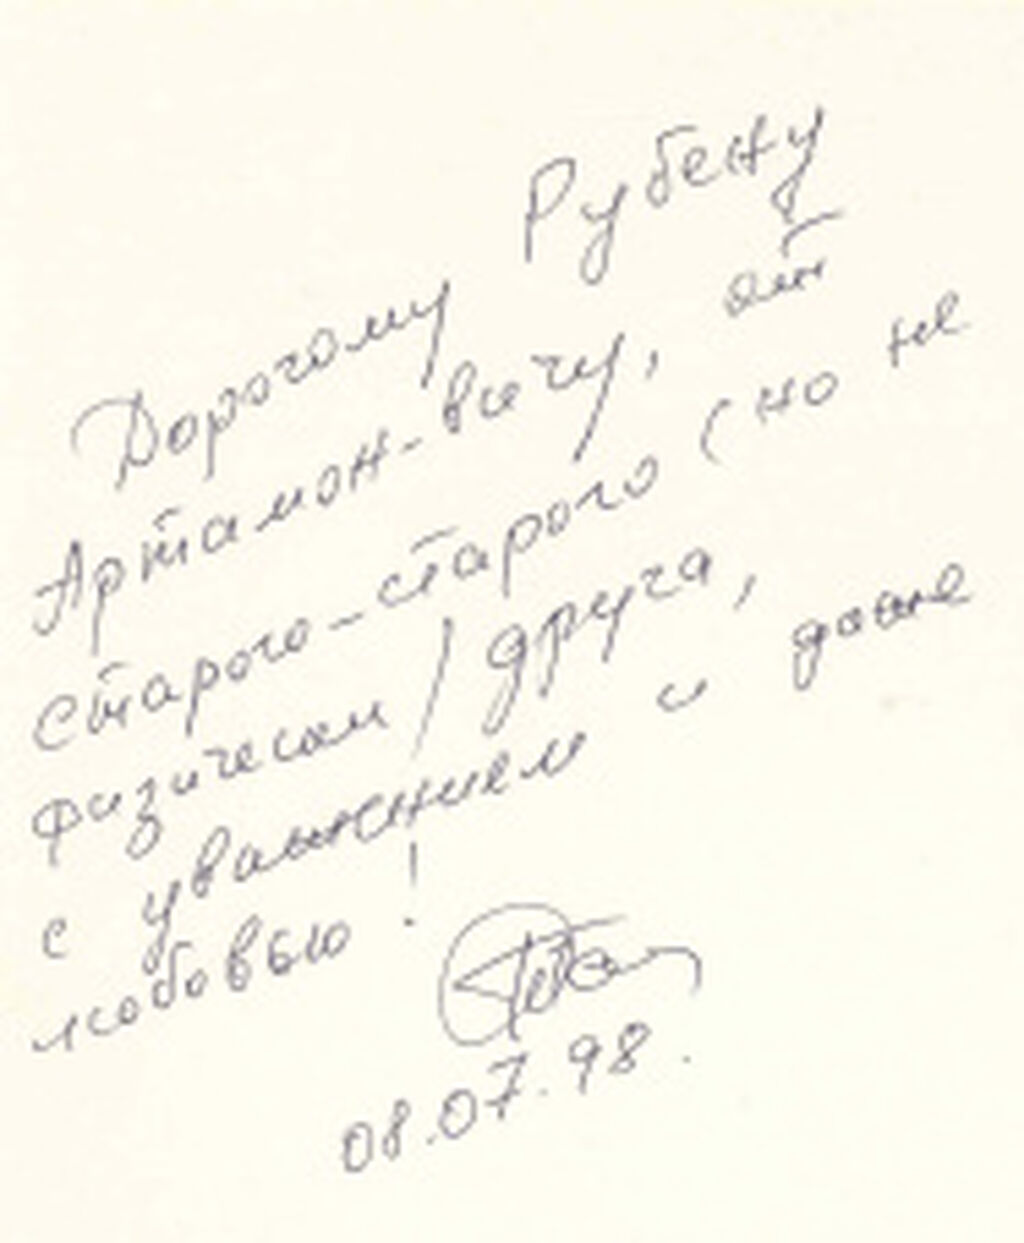 Дорогому Рубену
Артамон-вичу, от
старого-старого (но не
физичесам) друга,
с уважнием и даже
любовью!
08.07.98.